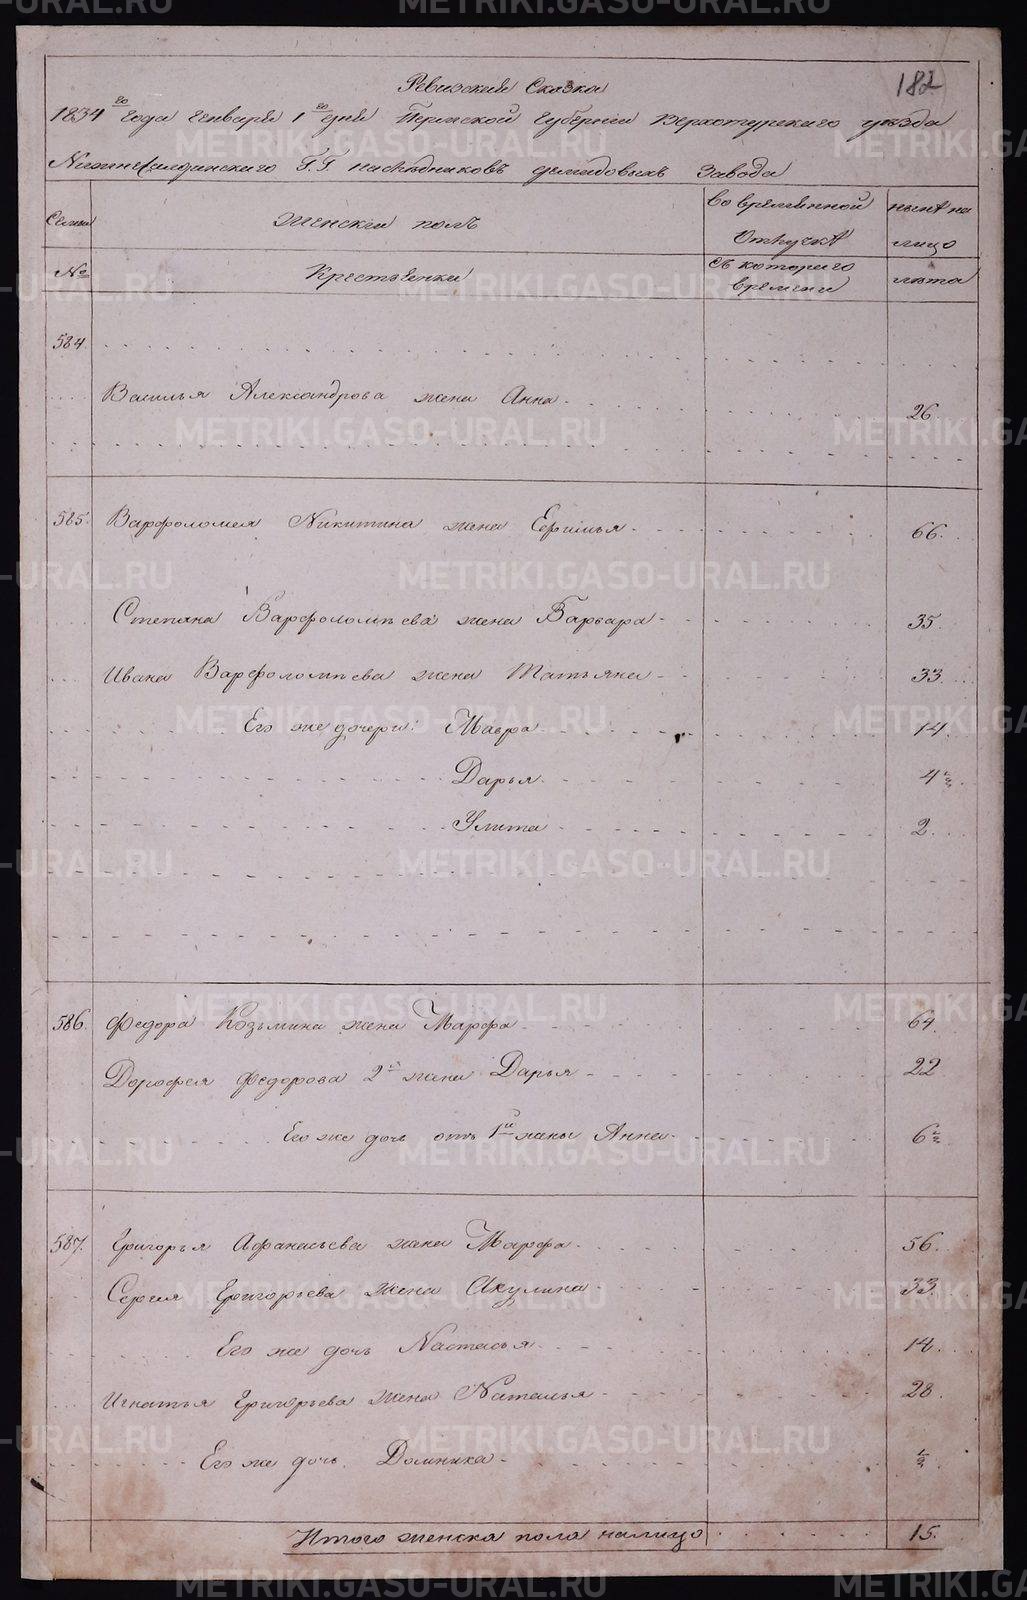 182
Ревизская Сказка
1834го года Генваря 1го дня Пермской Губернии Верхотурского уѣзда
Нижнесалдинскаго Г.Г. наслѣдниковъ Демидовыхъ Завода
Семьи
Женскій полъ
Во временной Отлучкѣ
нынѣ на лицо
№
Крестьянки
Съ котораго времени
лѣта
584.
Василья Александрова жена Анна 26
585. Варфоломея Никитина жена Ефимья 66.
Степана Варфоломѣева жена Варвара 35.
Ивана Варфоломѣева жена Татьяна 33.
Его же дочери: Мавра 14
Дарья 4½
Улита 2.
586. Федора Козьмина жена Марфа 64
Дорофея Федорова 2я жена Дарья 22
Его же дочь отъ 1й жены Анна 6½
587. Григорья Афанасьева жена Марфа 56.
Сергея Григорьева жена Акулина 33
Его же дочь Настасья 14.
Игнатья Григорьева жена Наталья 28
Его же дочь Домника ½
Итого женска пола налицо 15.
METRIKI.GASO-URAL.RU